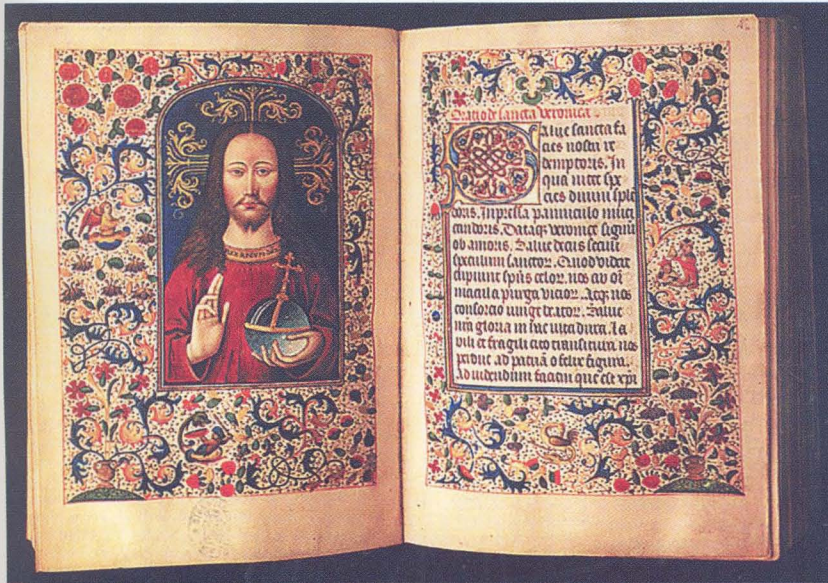 Oratio de sancta veronica
Salue sancta fa
cies nostri re
demptoris. In
qua nitet spe
cies diuini sple
doris. Inpressa panniculo niuei
candoris. Dataqz veronice signu
ob amoris. Salue decus seculi
speculum sanctor. Quod videre
cupiunt spus celor. nos ab oi
macula purga vicior. Atqz nos
consorcio iunge beator. Salue
nra gloria in hac vita dura. La
bili et fragili cito transitura. nos
perduc ad patria o felix figura.
Ad videndum faciem que est xpi